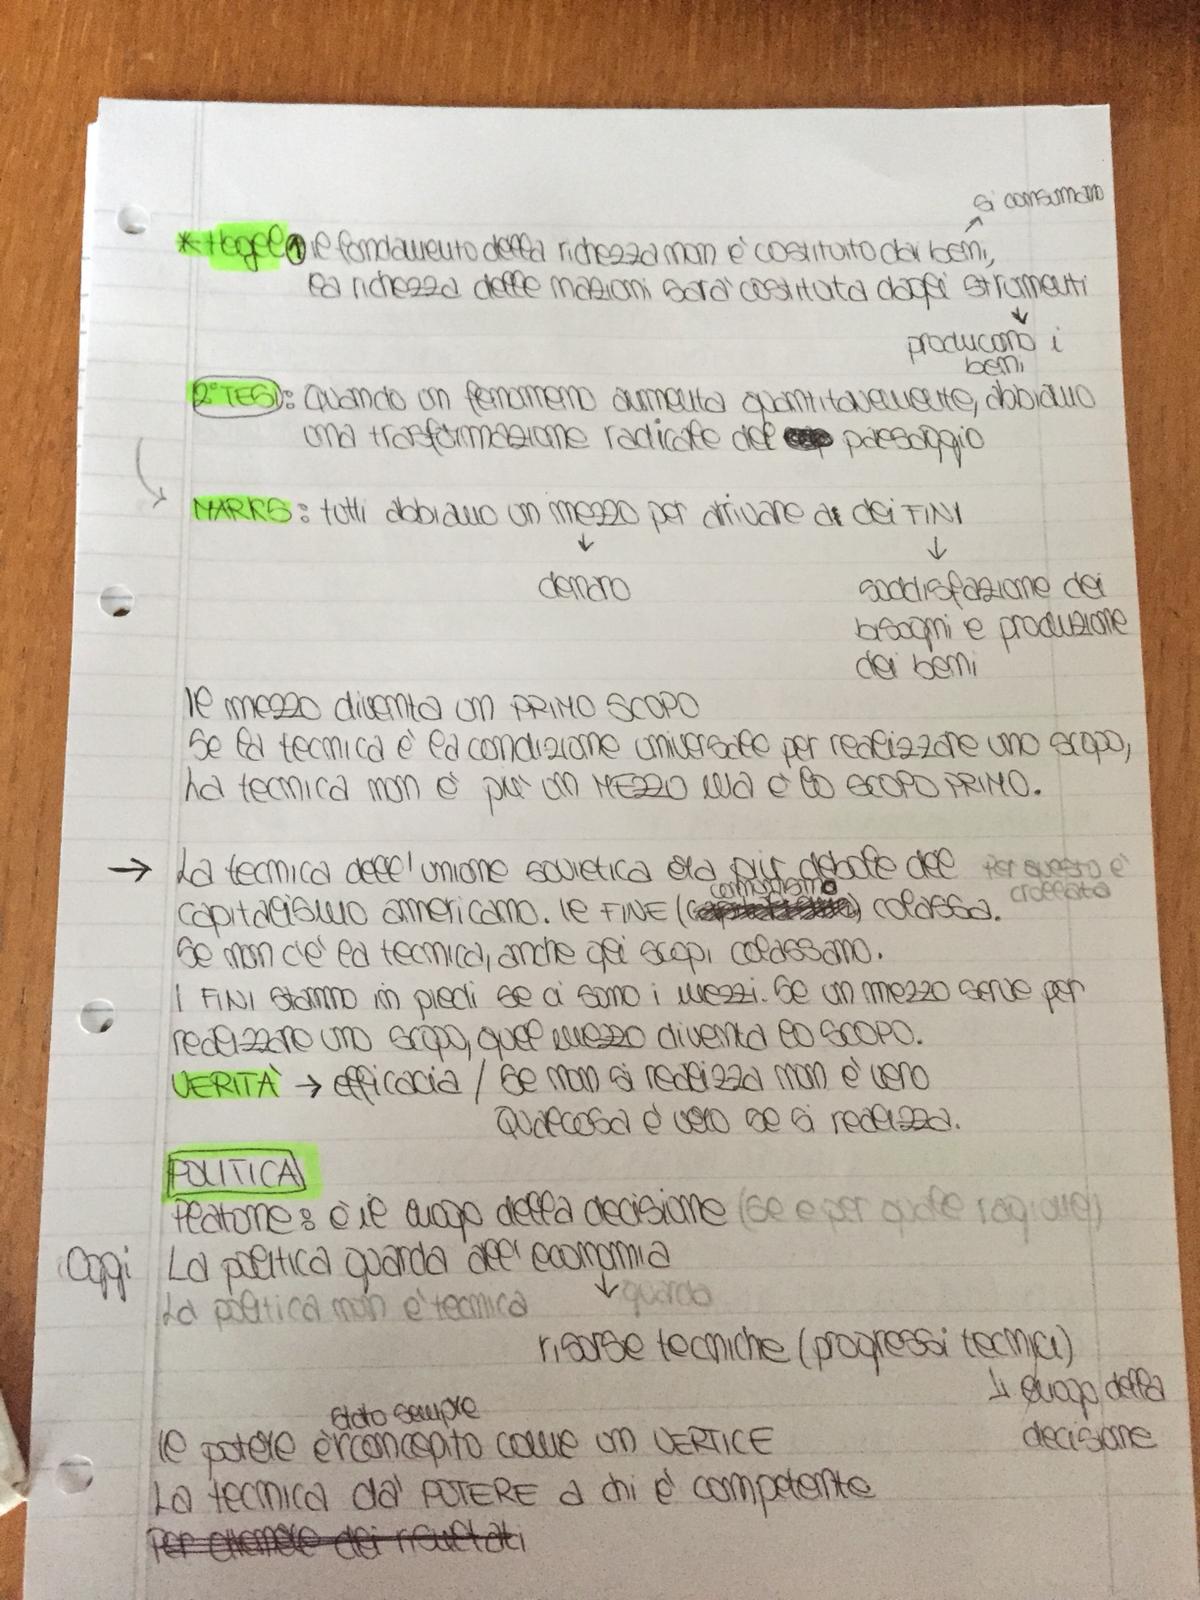 si consumano
* Hegel 1 il fondamento della richezza non è costituito dai beni,
la richezza delle nazioni sarà costituita dagli strumenti
↓
producono i
beni
2° TESI: Quando un fenomeno aumenta quantitavemente, abbiamo
una trasformazione radicale del paesaggio
MARKS: tutti abbiamo un mezzo per arrivare a dei FINI
↓ ↓
denaro soddisfazione dei
bisogni e produzione
dei beni
Il mezzo diventa un PRIMO SCOPO
Se la tecnica è la condizione universale per realizzare uno scopo,
La tecnica non è più un MEZZO ma è lo SCOPO PRIMO.
→ La tecnica dell'unione sovietica era più debole del Per questo è
crollata
comunismo
capitalismo americano. Il FINE ( ) colassa.
Se non c'è la tecnica, anche gli scopi colassano.
I FINI stanno in piedi se ci sono i mezzi. Se un mezzo serve per
realizzare uno scopo, quel mezzo diventa lo SCOPO.
VERITÀ → efficacia / Se non si realizza non è vero
Qualcosa è vero se si realizza.
POLITICA
Platone: è il luogo della decisione (se e per quale ragione)
Oggi La politica guarda all'economia
La politica non è tecnica ↓ guarda
risorse tecniche (progressi tecnici)
↳ luogo della
decisione
stato sempre
Il potere è concepito come un VERTICE
La tecnica dà POTERE a chi è competente
Per ottenere dei risultati